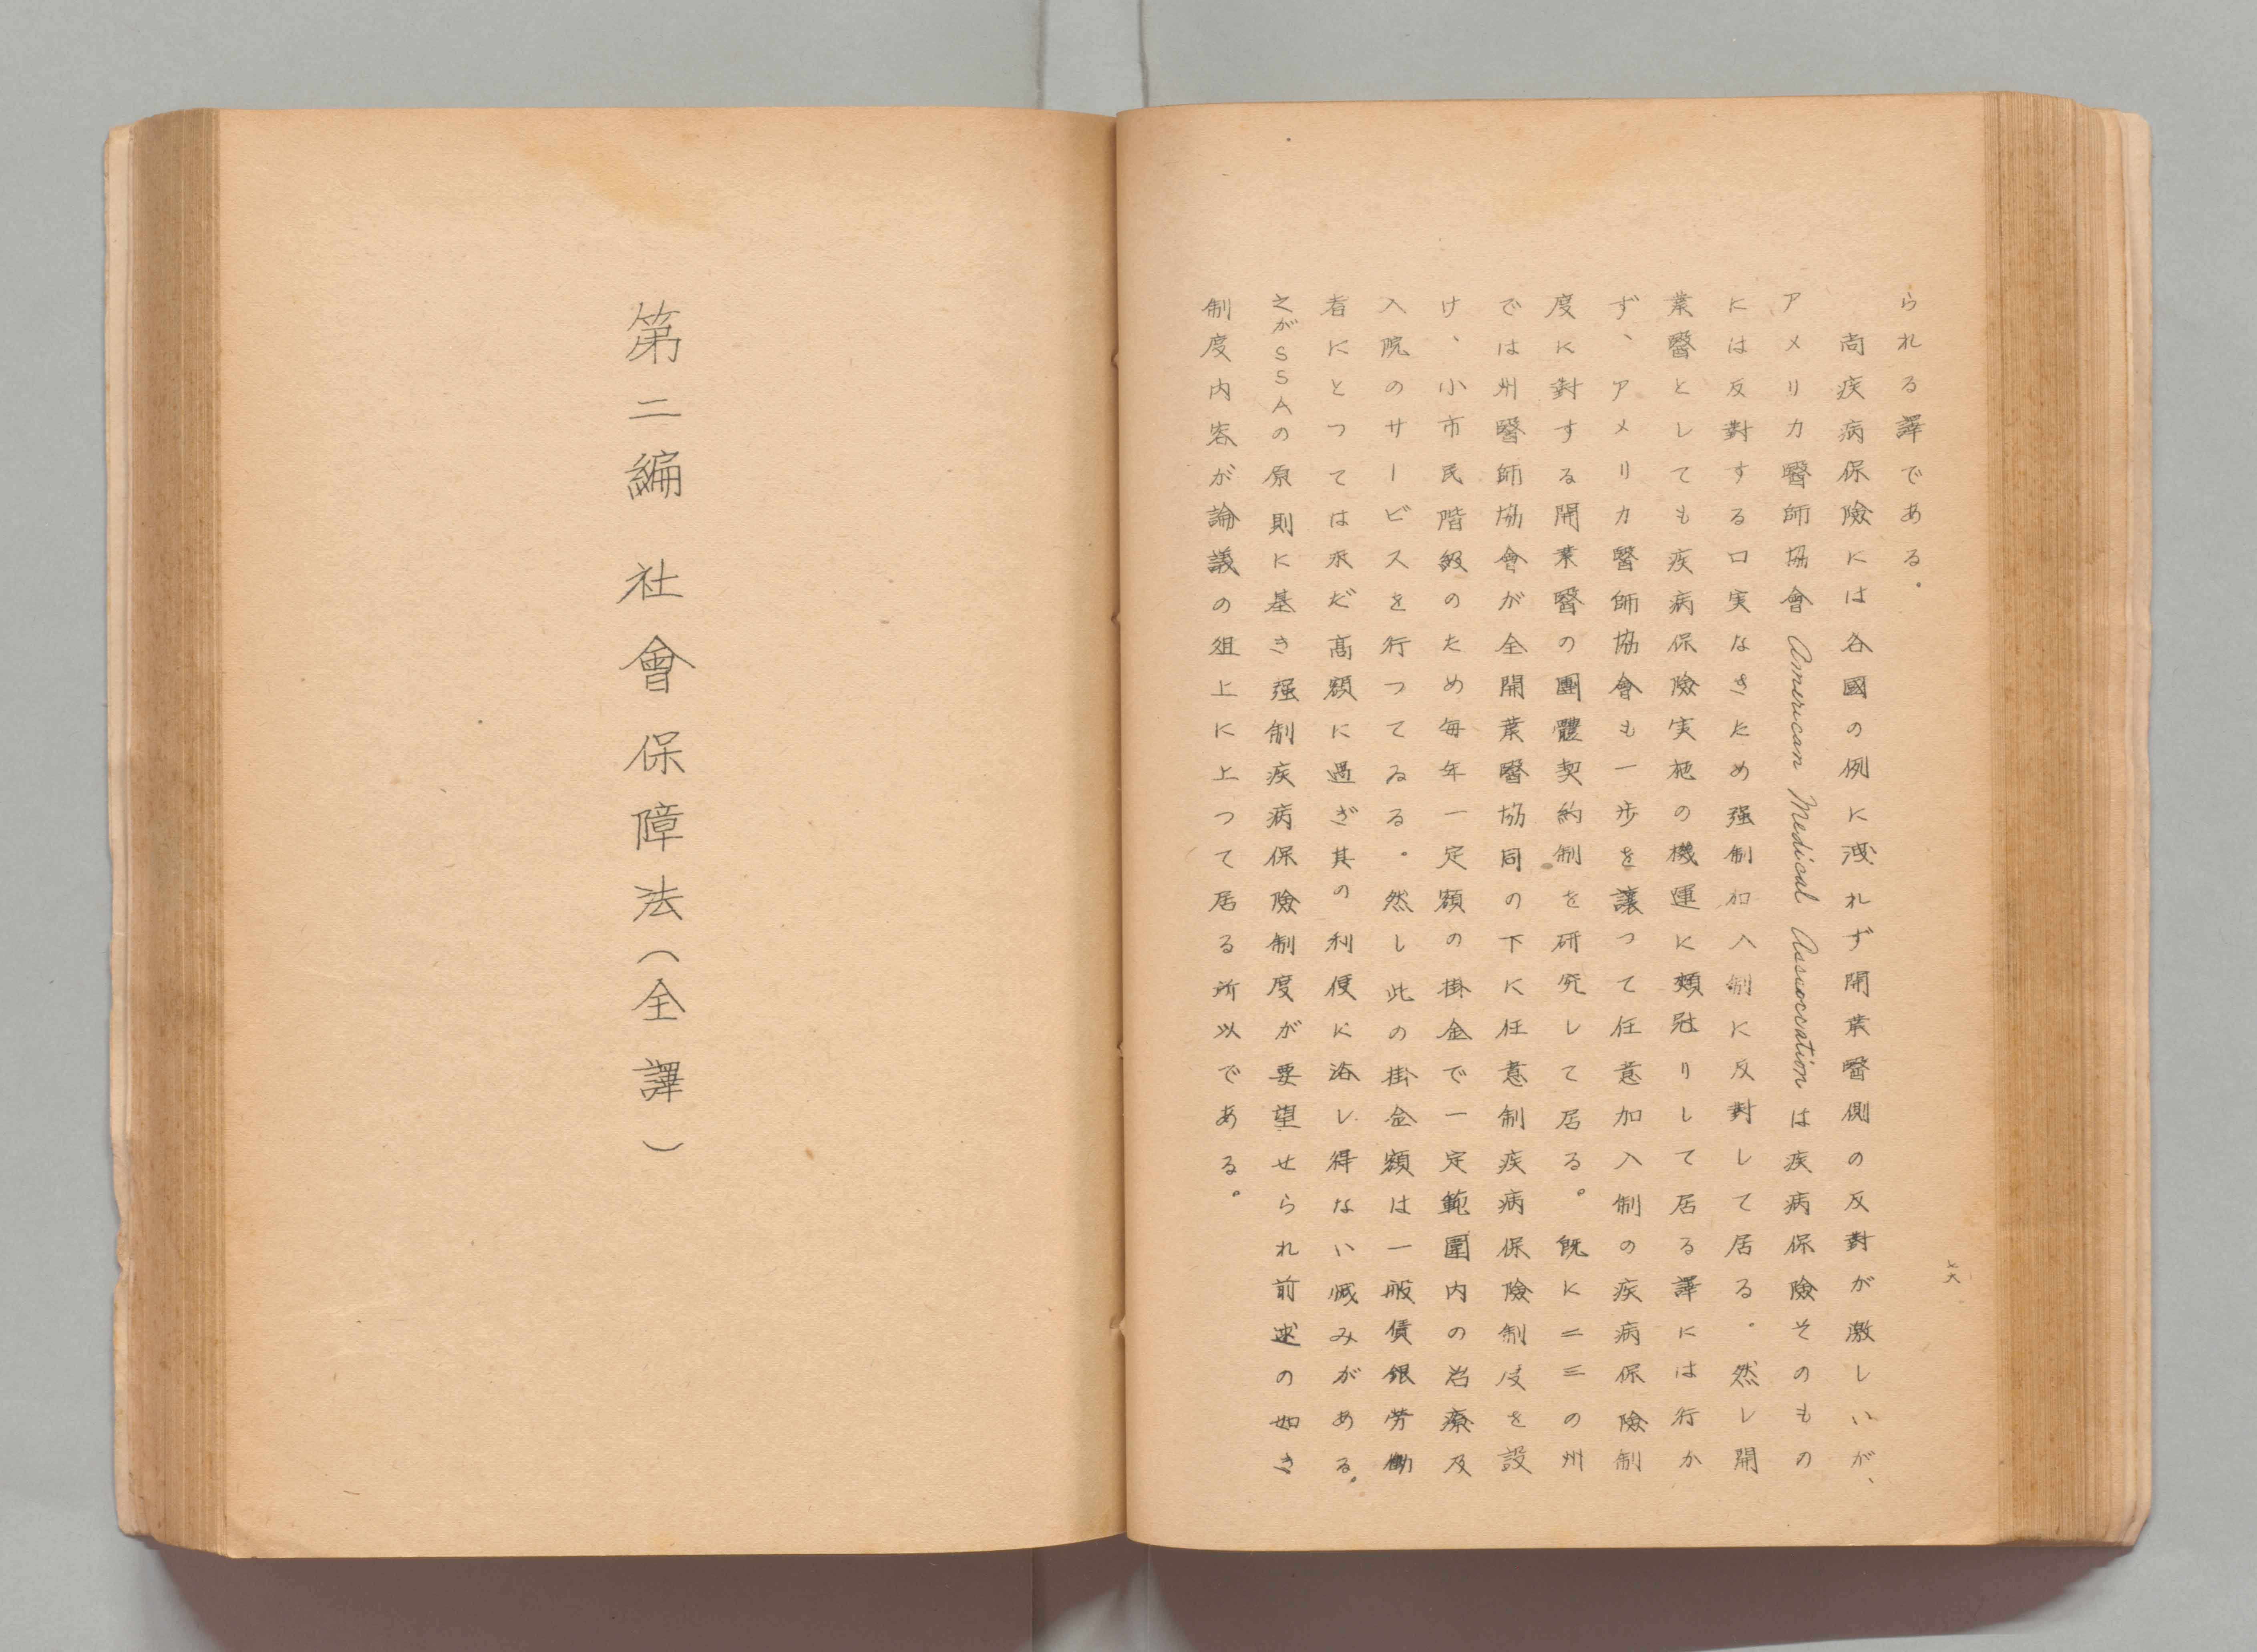 られる譯である。
尚疾病保險には各國の例に洩れず開業醫側の反對が激しいが、
アメリカ醫師協會 American Medical Association は疾病保險そのもの
には反對する口実なきため强制加入制に反對して居る。然し開
業醫としても疾病保險実施の機運に頬冠りして居る譯には行か
ず、アメリカ醫師協會も一歩を讓つて任意加入制の疾病保險制
度に對する開業醫の團體契約制を研究して居る。既に二三の州
では州醫師協會が全開業醫協同の下に任意制疾病保險制度を設
け、小市民階級のため毎年一定額の掛金で一定範圍内の治療及
入院のサービスを行つてゐる。然し此の掛金額は一般賃銀労働
者にとつては未だ高額に過ぎ其の利便に浴し得ない憾みがある。
之がSSAの原則に基き强制疾病保險制度が要望せられ前述の如き
制度内容が論議の俎上に上つて居る所以である。
七六
第二編 社會保障法(全譯)